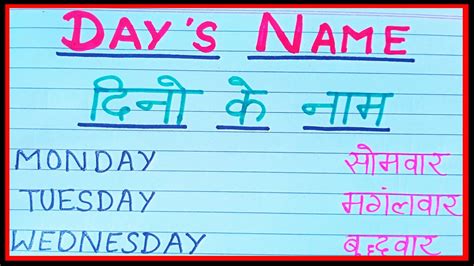 DAY'S NAME
दिनो के नाम
MONDAY सोमवार
TUESDAY मगंलवार
WEDNESDAY बुद्दवार